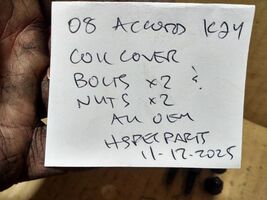 08 ACCORD K24
COIL COVER
BOLTS x2 &
NUTS x2
ALL OEM
HSPECPARTS
11-17-2025